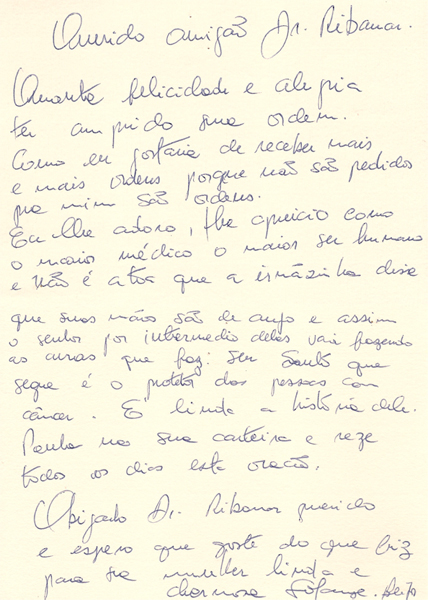 Querido amigão Dr. Ribamar.
Quanta felicidade e alegria
ter cumprido sua ordem.
Como eu gostaria de receber mais
e mais ordens porque não são pedidos
pra mim são ordens.
Eu lhe adoro, lhe aprecio como
o maior médico o maior ser humano
e não é atoa que a irmãzinha disse
que suas mãos são de anjo e assim
o senhor por intermedio delas vai fazendo
as curas que faz: seu Santo que
segue é o protetor das pessoas com
câncer. E linda a história dele.
Ponha na sua carteira e reze
todos os dias esta oração.
Obrigado Dr. Ribamar querido
e espero que goste do que fiz
para sua mulher linda e
charmosa Solange. Beijo